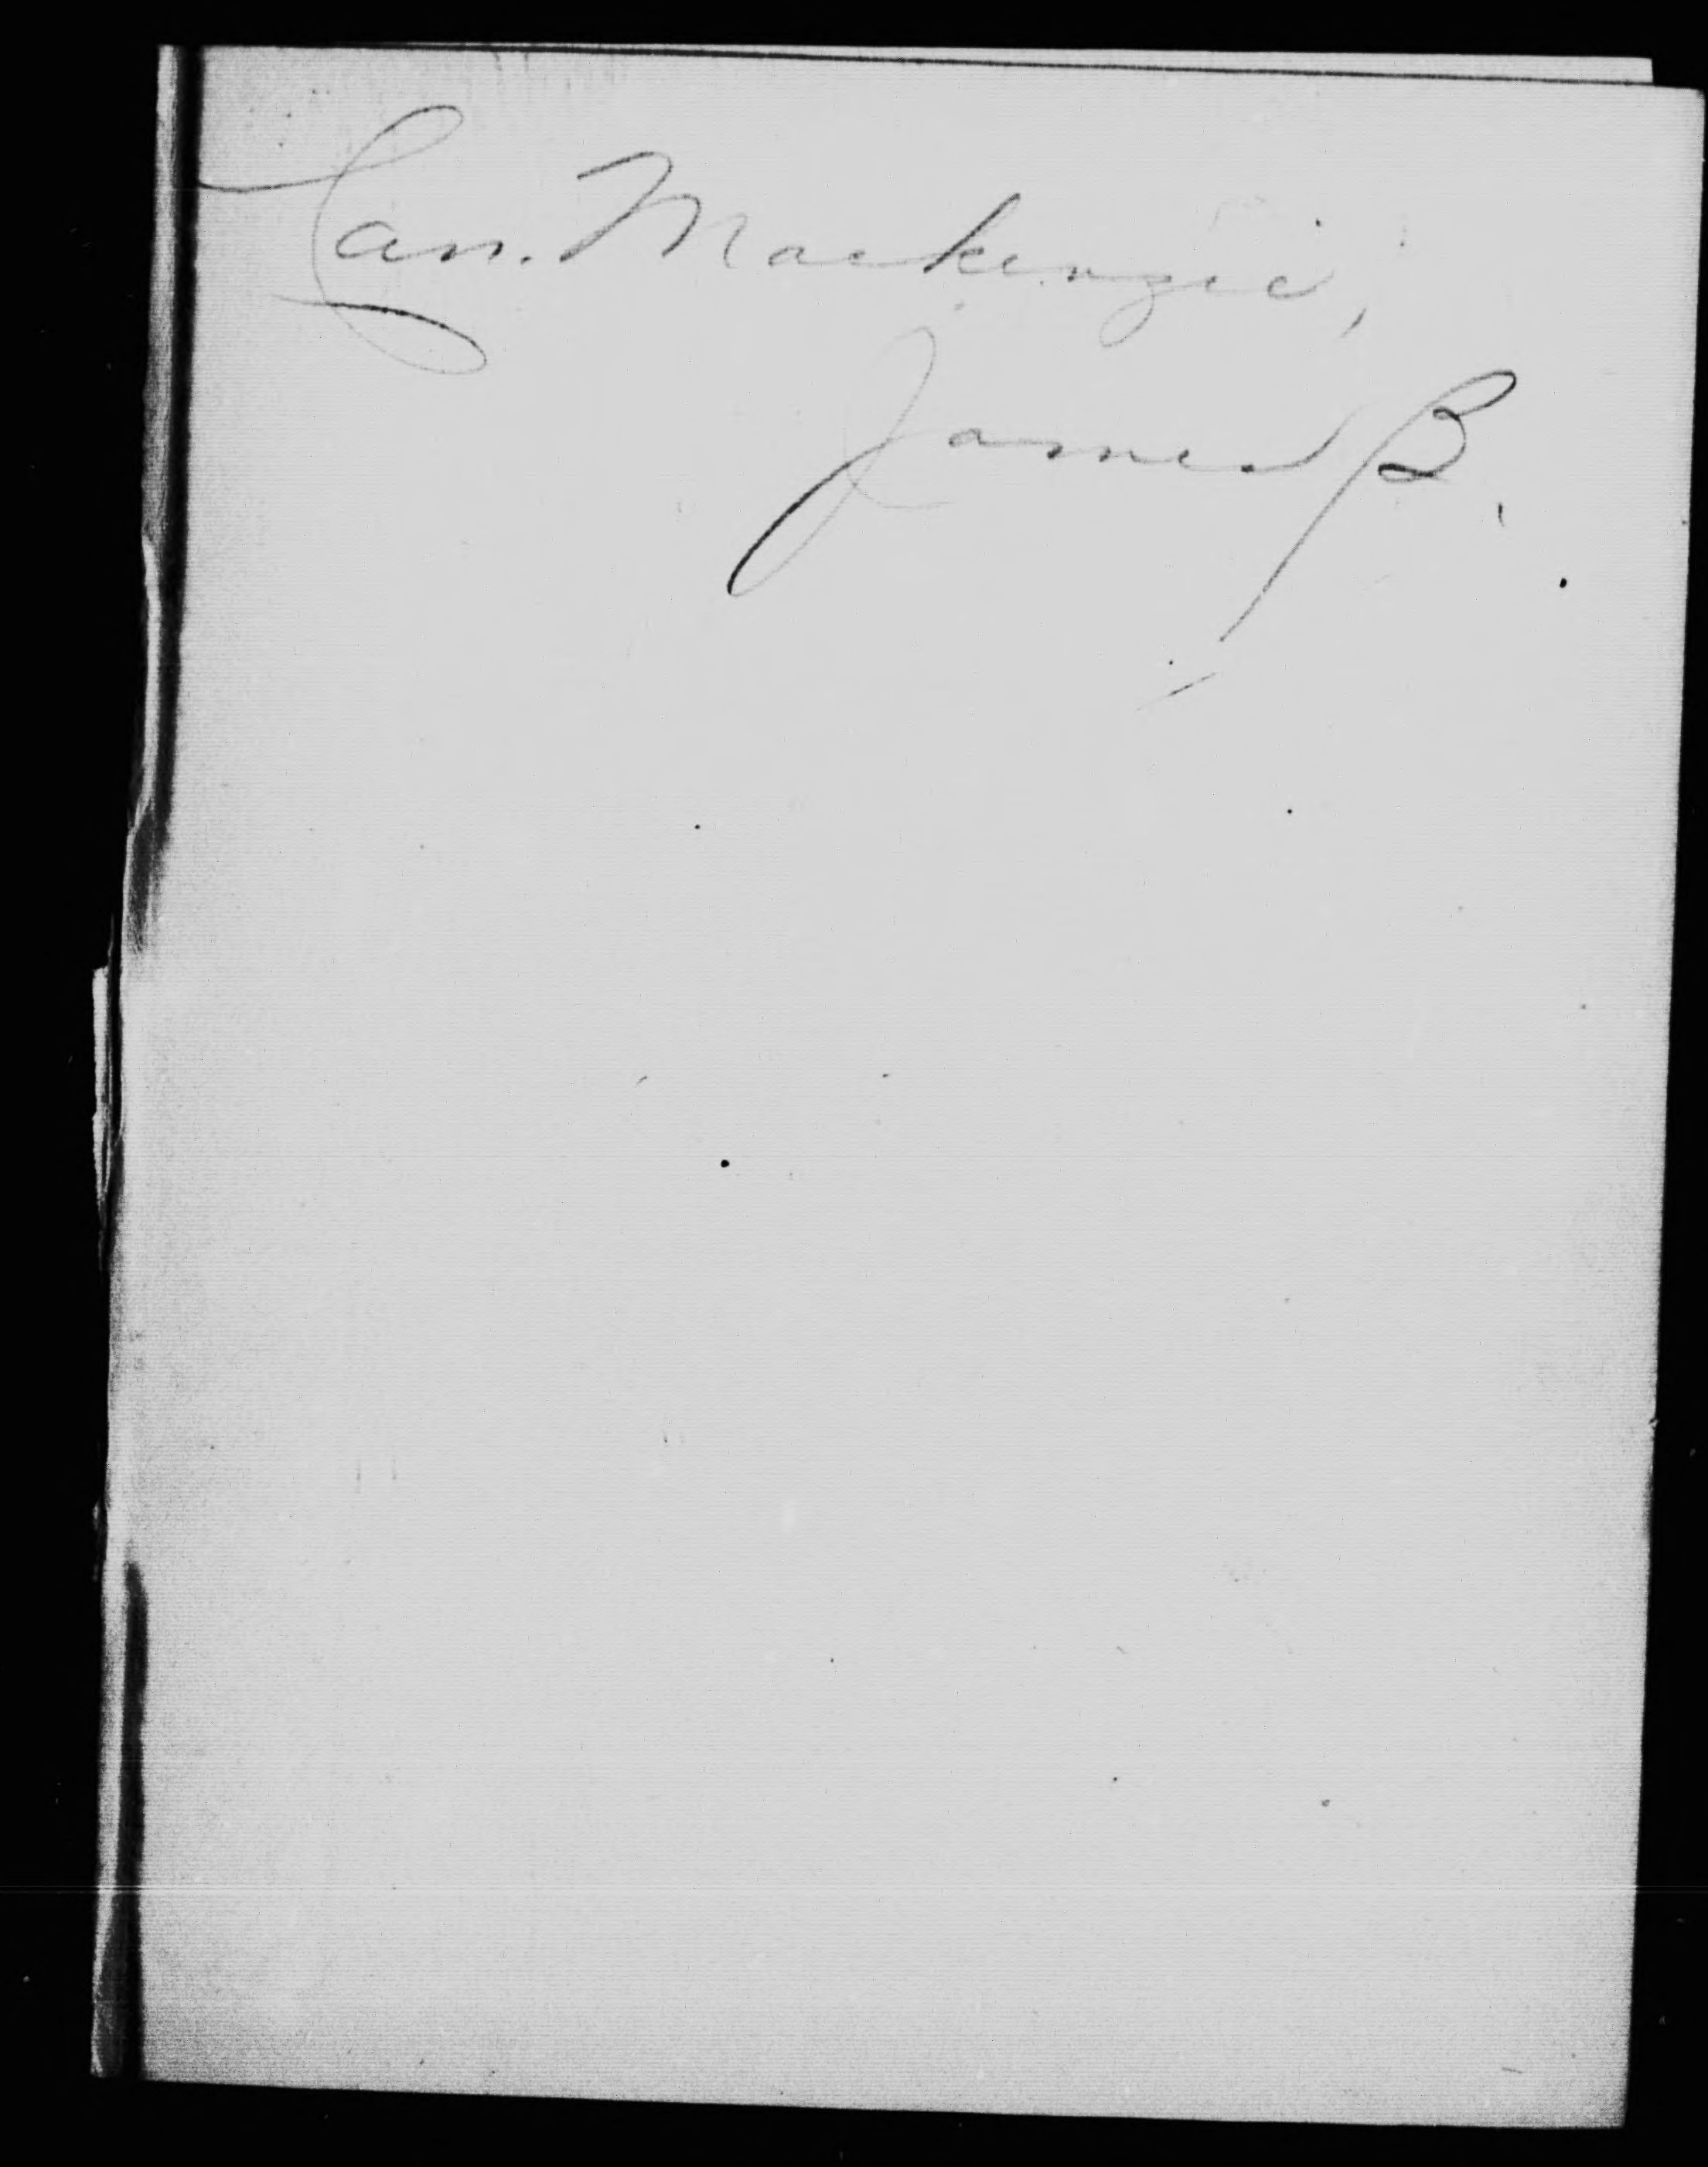 Can. Mackenzie,
James B.